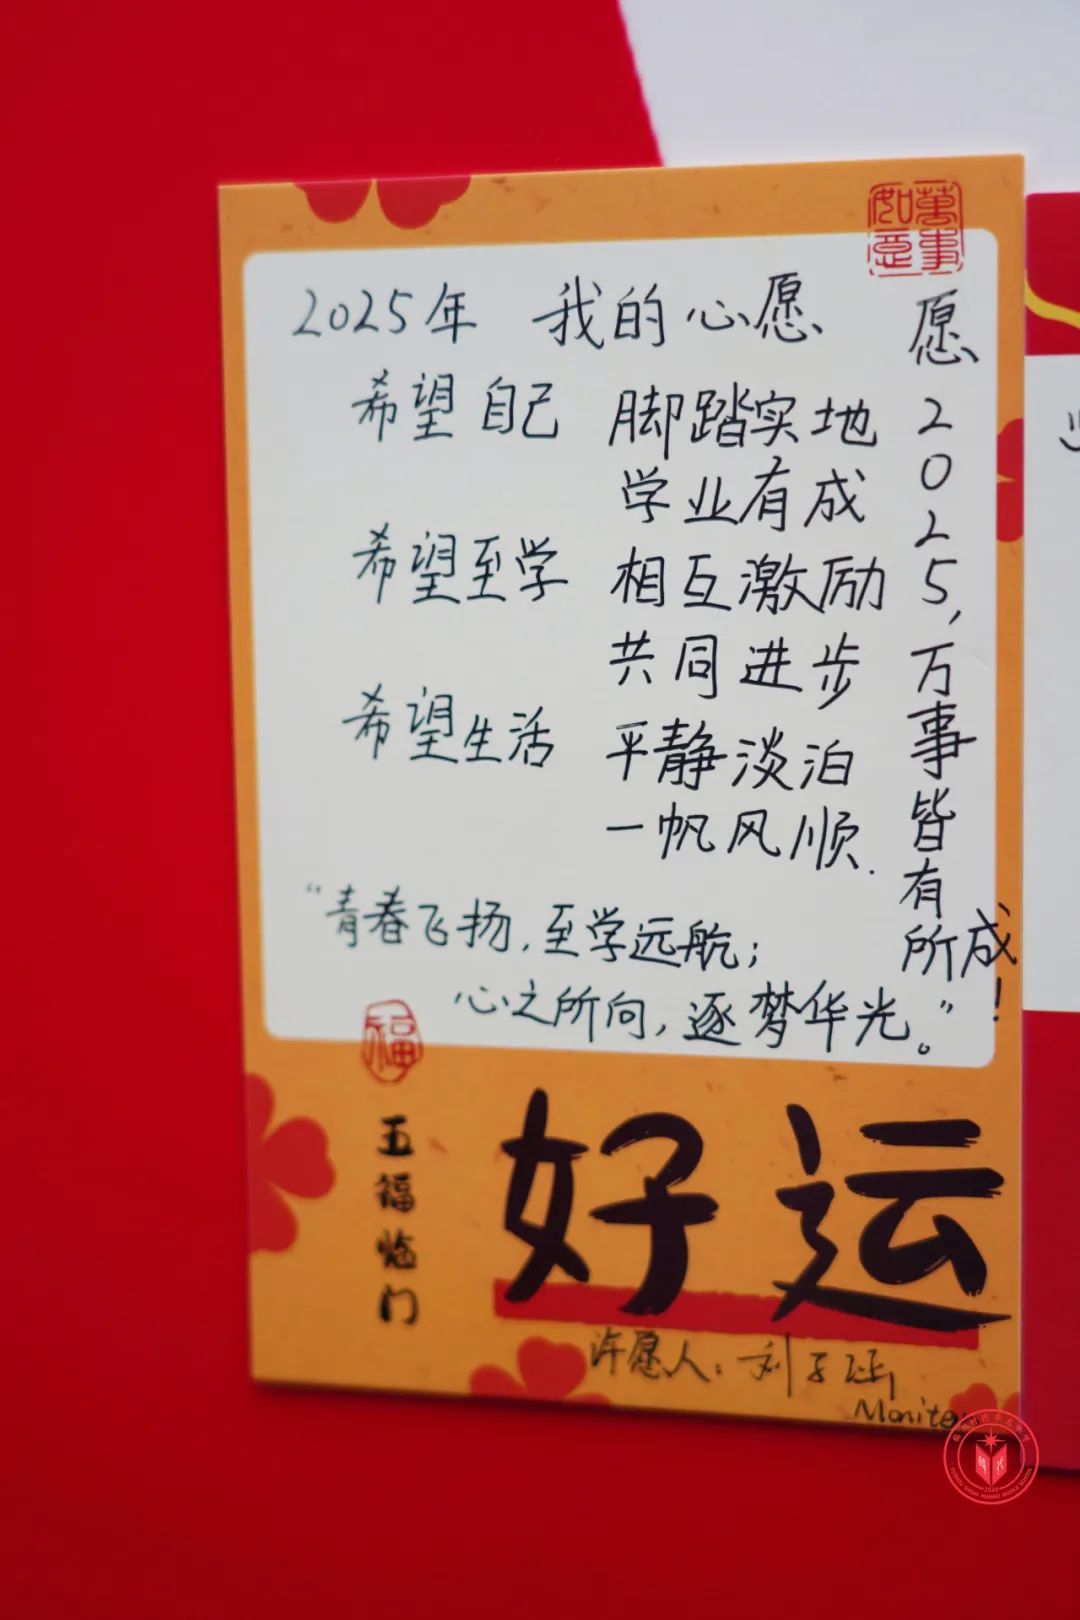 萬事如意
2025年 我的心愿
希望自己 脚踏实地
学业有成
希望至学 相互激励
共同进步
希望生活 平静淡泊
一帆风顺.
“青春飞扬,至学远航;
心之所向,逐梦华光。”
愿2025,万事皆有所成!
福
五福临门
好运
许愿人:刘子涵